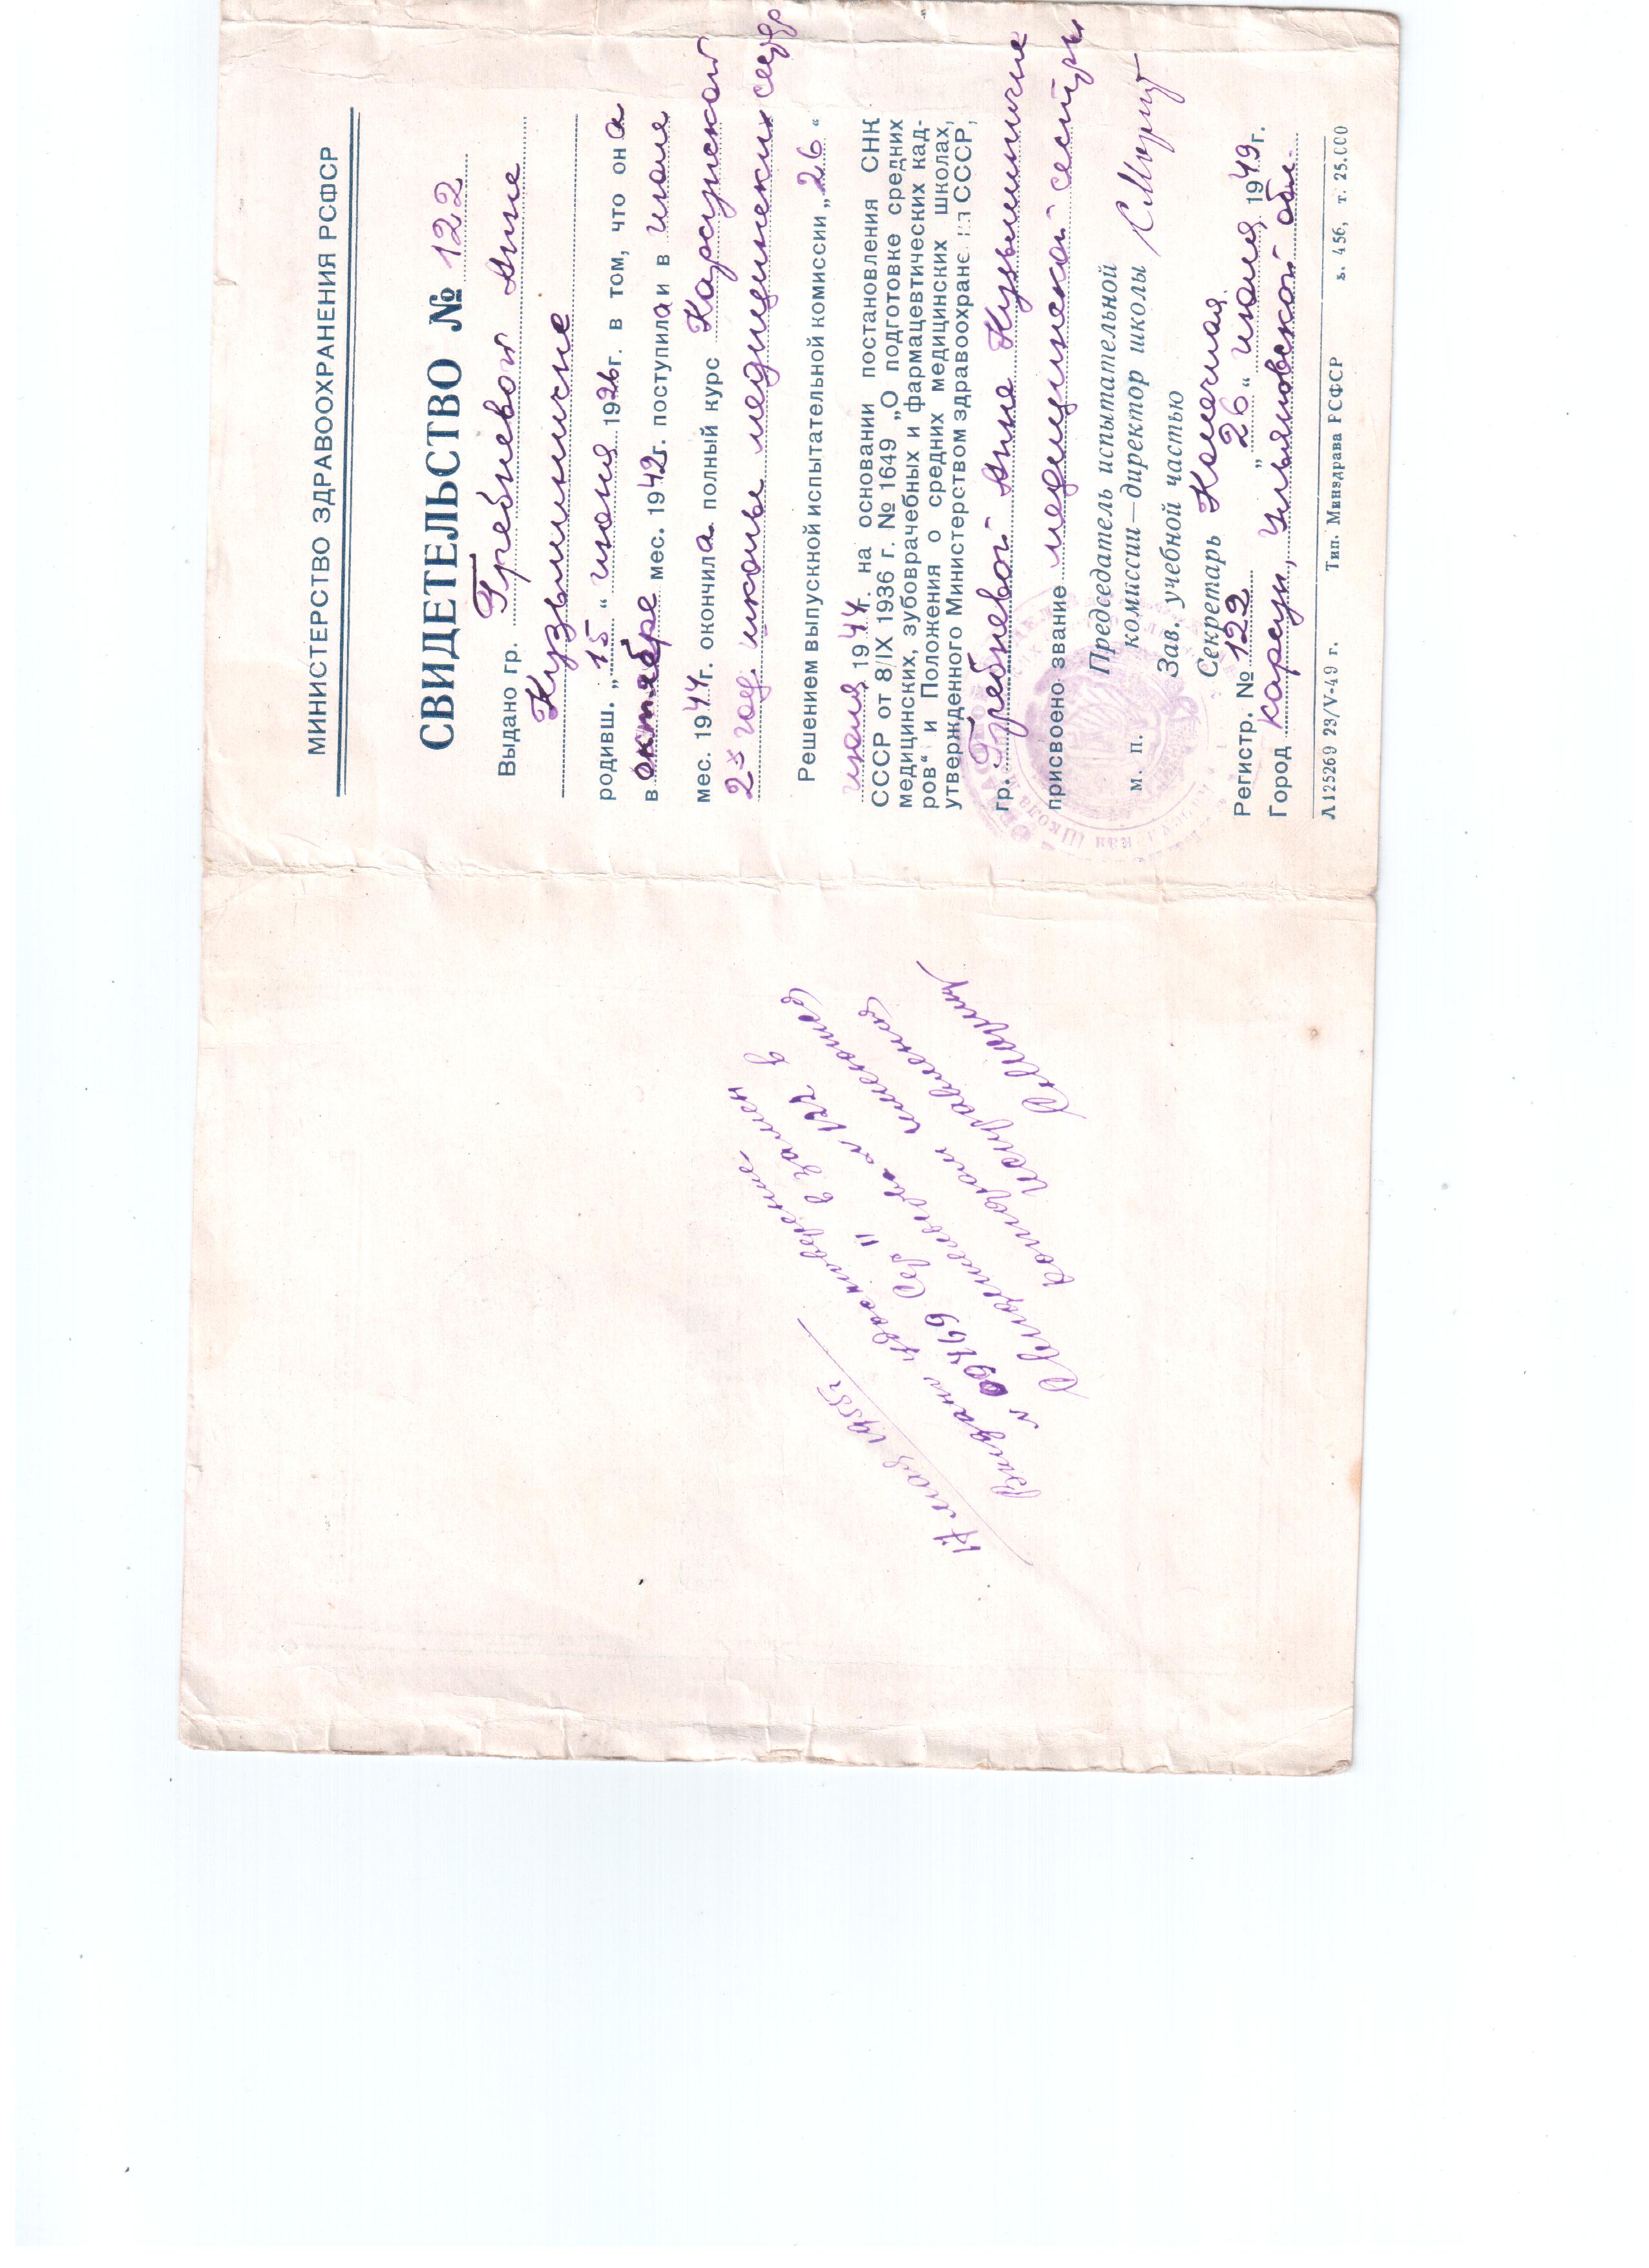 МИНИСТЕРСТВО ЗДРАВООХРАНЕНИЯ РСФСР
СВИДЕТЕЛЬСТВО № 122
Выдано гр. Гребневой Анне
Кузьминичне
родивш. „15“ июня 1926г. в том, что он а
в октябре мес. 1942г. поступила и в июле
мес. 1944г. окончила полный курс Карсунской
2х год. школы медицинских сестр
Решением выпускной испытательной комиссии „26“
июля 1944г. на основании постановления СНК
СССР от 8/IX 1936 г. № 1649 „О подготовке средних
медицинских, зубоврачебных и фармацевтических кад-
ров“ и Положения о средних медицинских школах,
утвержденного Министерством здравоохранения СССР,
гр. Гребневой Анне Кузьминичне
присвоено звание медицинской сестры
Председатель испытательной
комиссии—директор школы
м. п.
Зав. учебной частью
Секретарь
Регистр. № 122 „26“ июля 1949г.
Город Карсун, Ульяновской обл.
Л125269 23/V-49 г. Тип. Минздрава РСФСР з. 456, т. 25.000
17 мая 1955г
Выдано удостоверение
№ 09469 в замен
Свидетельства № 122 в
котором имеются
исправления